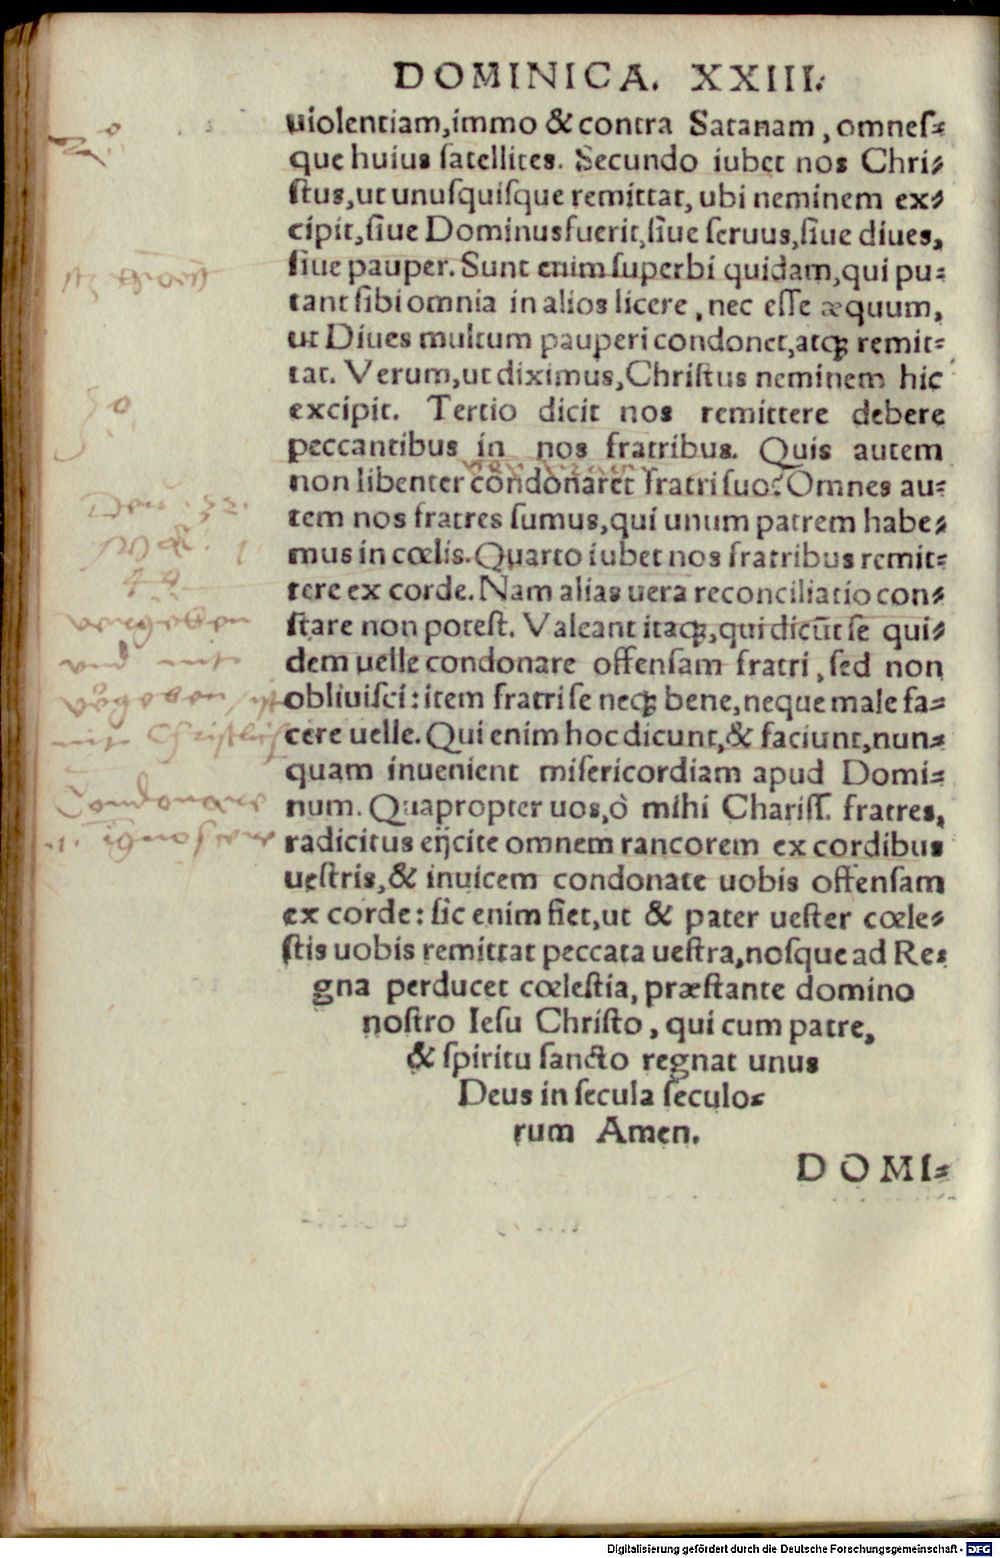 DOMINICA. XXIII.
uiolentiam,immo & contra Satanam, omneſ-
que huius ſatellites. Secundo iubet nos Chri-
ſtus,ut unuſquiſque remittat, ubi neminem ex-
cipit,ſiue Dominus fuerit,ſiue ſeruus,ſiue diues,
ſiue pauper. Sunt enim ſuperbi quidam,qui pu-
tant ſibi omnia in alios licere, nec eſſe æquum,
ut Diues multum pauperi condonet,atqꝫ remit-
tat. Verum,ut diximus,Chriſtus neminem hic
excipit. Tertio dicit nos remittere debere
peccantibus in nos fratribus. Quis autem
non libenter condonaret fratri ſuo? Omnes au-
tem nos fratres ſumus,qui unum patrem habe-
mus in cœlis. Quarto iubet nos fratribus remit-
tere ex corde. Nam alias uera reconciliatio con-
ſtare non poteſt. Valeant itaqꝫ,qui dicūt ſe qui-
dem uelle condonare offenſam fratri, ſed non
obliuiſci: item fratri ſe neqꝫ bene,neque male fa-
cere uelle. Qui enim hoc dicunt,& faciunt,nun-
quam inuenient miſericordiam apud Domi-
num. Quapropter uos,ò mihi Chariſſ. fratres,
radicitus eijcite omnem rancorem ex cordibus
ueſtris,& inuicem condonate uobis offenſam
ex corde: ſic enim fiet,ut & pater ueſter cœle-
ſtis uobis remittat peccata ueſtra,noſque ad Re-
gna perducet cœleſtia, præſtante domino
noſtro Ieſu Chriſto, qui cum patre,
& ſpiritu ſancto regnat unus
Deus in ſecula ſeculo-
rum Amen.
DOMI-
2°
3°
44
vergeben
und nit
vergeben / ist
nit Christlich
Condonare
.i. ignoscere
Digitalisierung gefördert durch die Deutsche Forschungsgemeinschaft - DFG